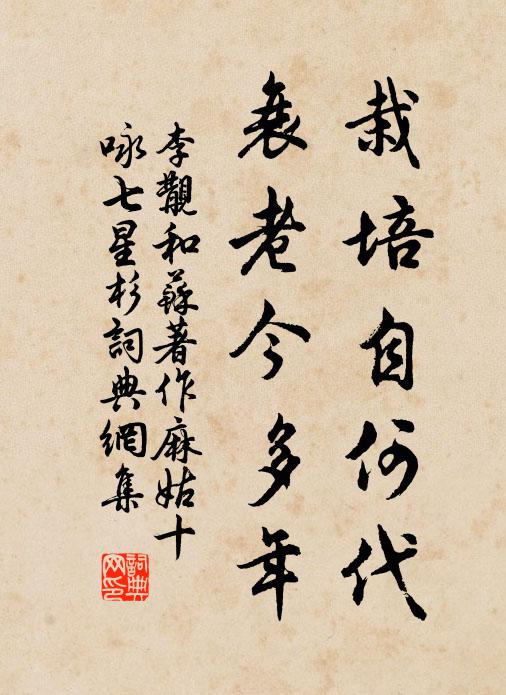 栽培自何代
衰老今多年
李觀和蘇著作麻姑十
咏七星杉詞典網集
詞典
网印